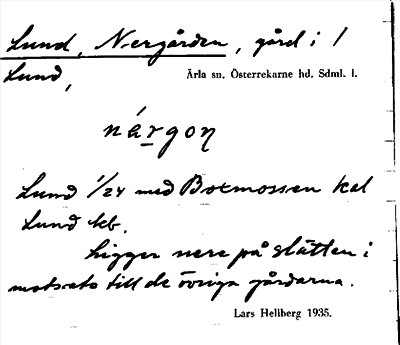 Lund, Nergården, gård i
Lund,
Ärla sn. Österrekarne hd. Sdml. l.
nárgon
Lund 1/24 med Botmossen kal
Lund kb.
Ligger nere på slätten i
motsats till de övriga gårdarna.
Lars Hellberg 1935.